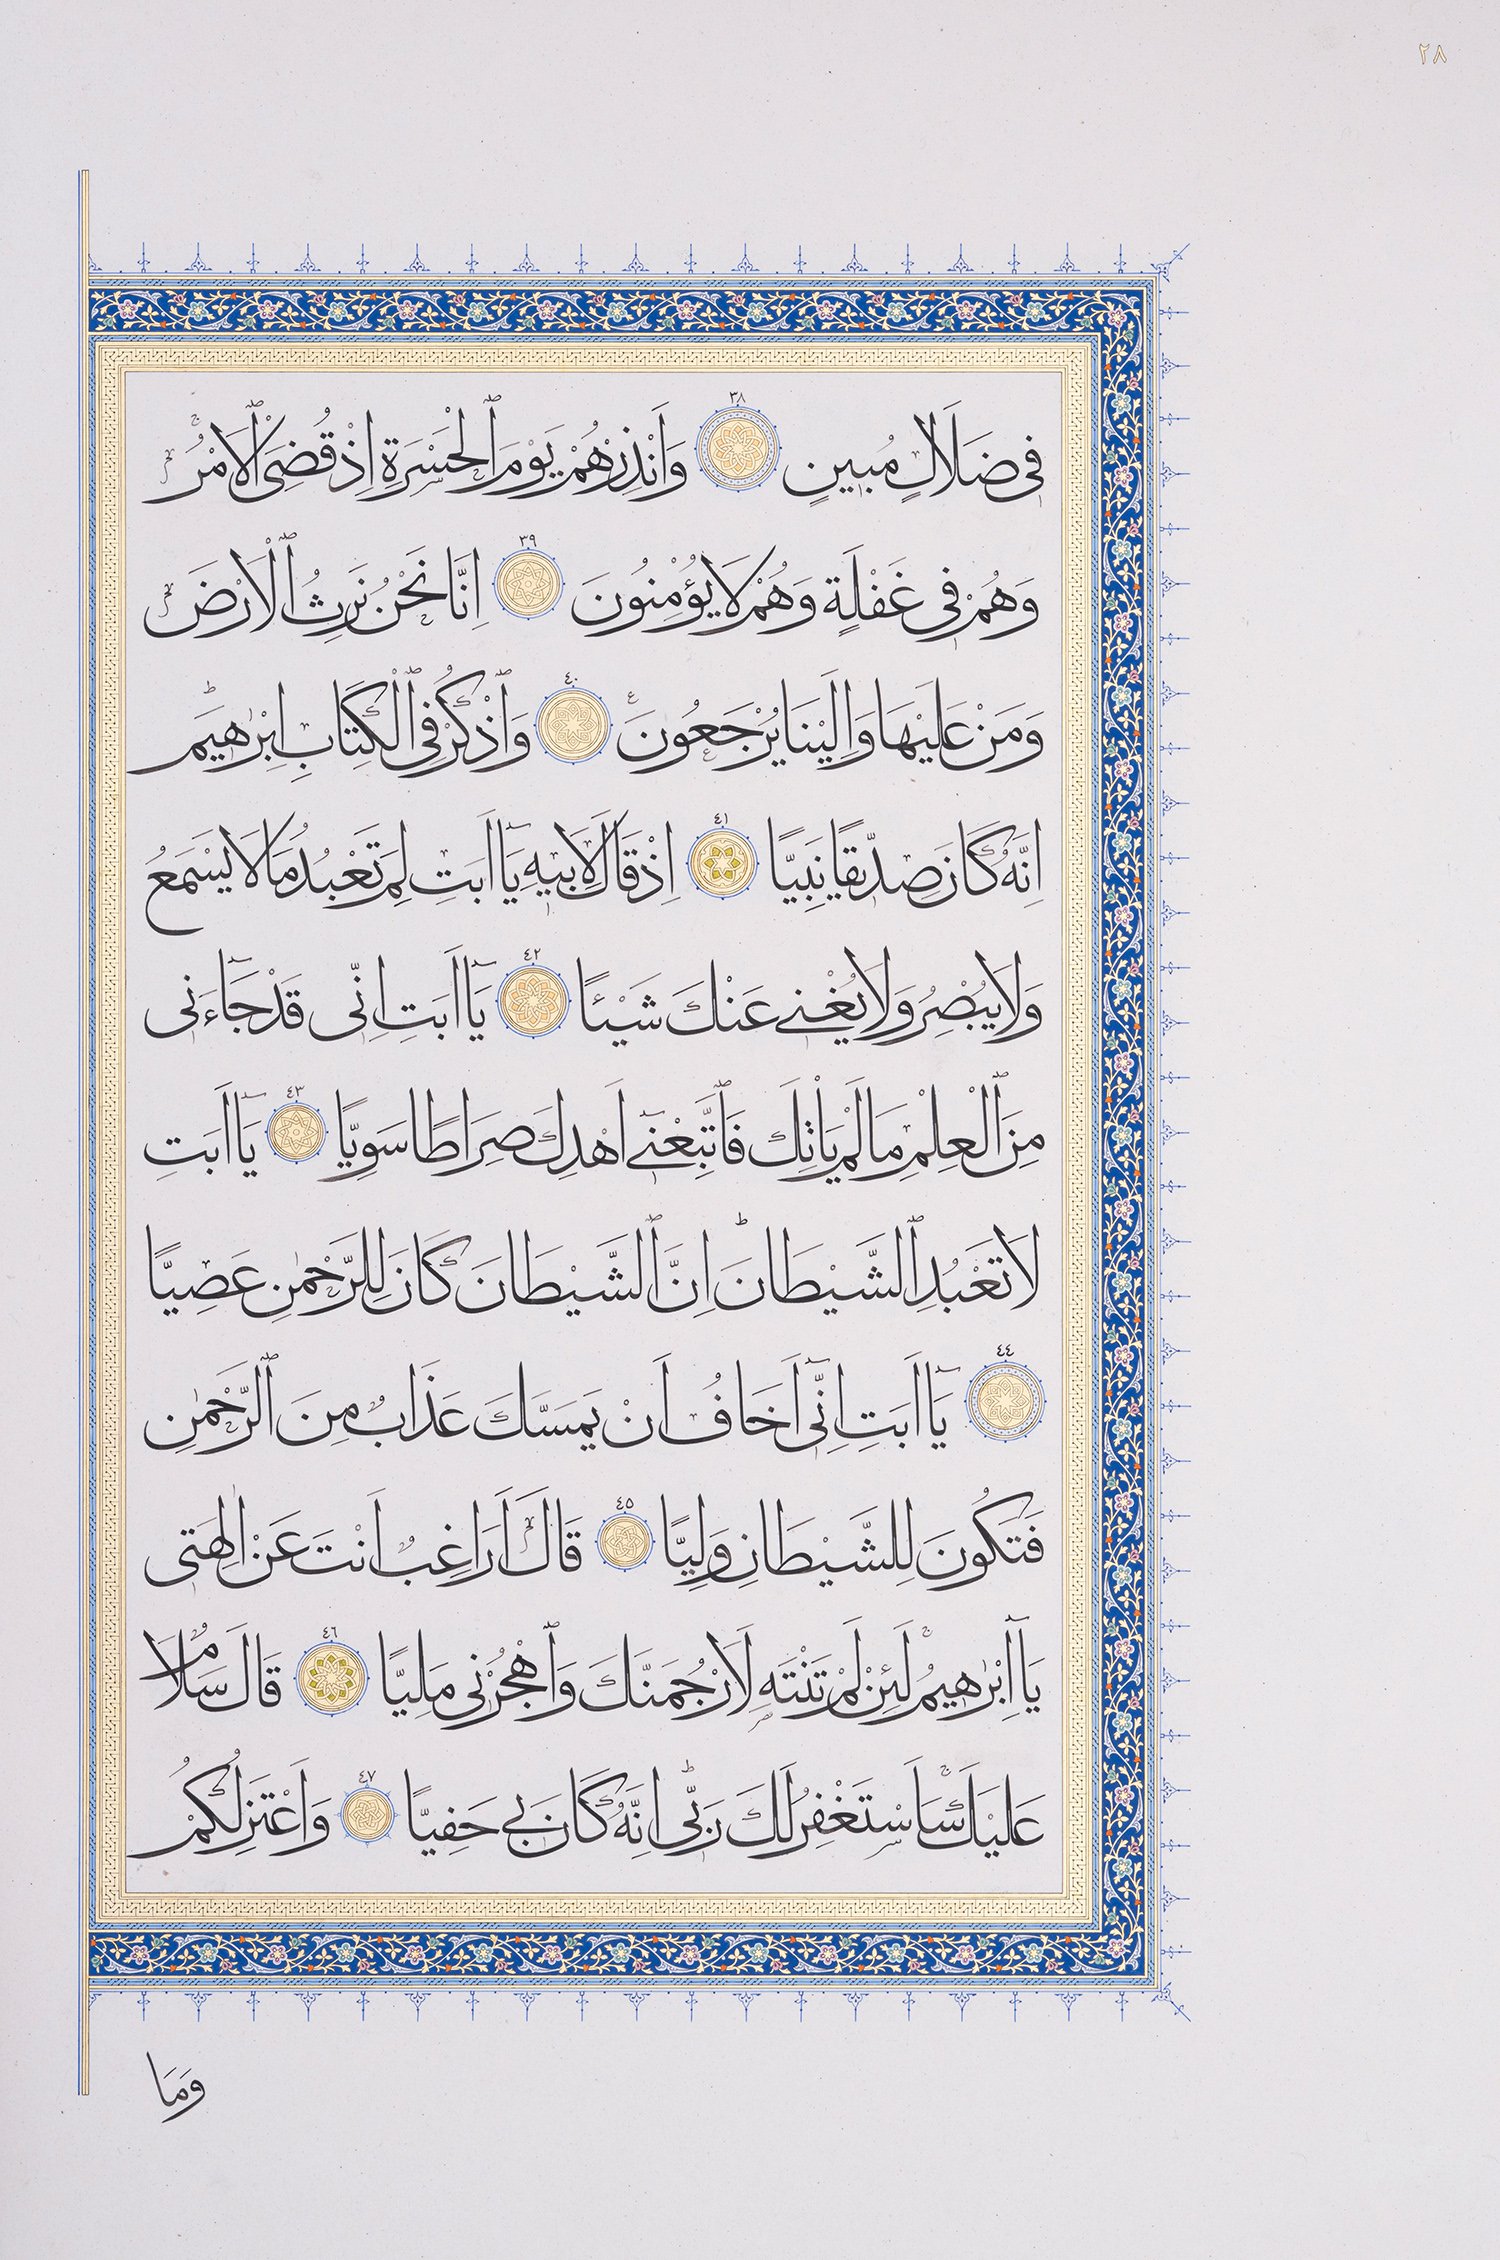 ٢٨
فى ضَلَالٍ مُبٖينٍ ٣٨ وَاَنْذِرْهُمْ يَوْمَ ٱلْحَسْرَةِ اِذْ قُضِىَ ٱلْاَمْرُۘ
وَهُمْ فٖى غَفْلَةٍ وَهُمْ لَا يُؤْمِنُونَ ٣٩ اِنَّا نَحْنُ نَرِثُ ٱلْاَرْضَ
وَمَنْ عَلَيْهَا وَاِلَيْنَا يُرْجَعُونَ ࣖ ٤٠ وَٱذْكُرْ فِى ٱلْكِتَابِ اِبْرٰهٖيمَؕ
اِنَّهُ كَانَ صِدّٖيقًا نَبِيًّا ٤١ اِذْ قَالَ لِاَبٖيهِ يَٓا اَبَتِ لِمَ تَعْبُدُ مَا لَا يَسْمَعُ
وَلَا يُبْصِرُ وَلَا يُغْنٖى عَنْكَ شَيْـًٔا ٤٢ يَٓا اَبَتِ اِنّٖى قَدْ جَٓاءَنٖى
مِنَ ٱلْعِلْمِ مَا لَمْ يَاْتِكَ فَٱتَّبِعْنٖٓى اَهْدِكَ صِرَاطًا سَوِيًّا ٤٣ يَٓا اَبَتِ
لَا تَعْبُدِ ٱلشَّيْطَانَؕ اِنَّ ٱلشَّيْطَانَ كَانَ لِلرَّحْمٰنِ عَصِيًّا
٤٤ يَٓا اَبَتِ اِنّٖٓى اَخَافُ اَنْ يَمَسَّكَ عَذَابٌ مِنَ ٱلرَّحْمٰنِ
فَتَكُونَ لِلشَّيْطَانِ وَلِيًّا ٤٥ قَالَ اَرَاغِبٌ اَنْتَ عَنْ اٰلِهَتٖى
يَٓا اِبْرٰهٖيمُ لَئِنْ لَمْ تَنْتَهِ لَاَرْجُمَنَّكَ وَٱهْجُرْنٖى مَلِيًّا ٤٦ قَالَ سَلَامٌ
عَلَيْكَۚ سَاَسْتَغْفِرُ لَكَ رَبّٖىؕ اِنَّهُ كَانَ بٖى حَفِيًّا ٤٧ وَاَعْتَزِلُكُمْ
وَمَا